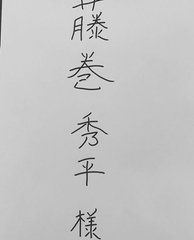 藤巻 秀平 様